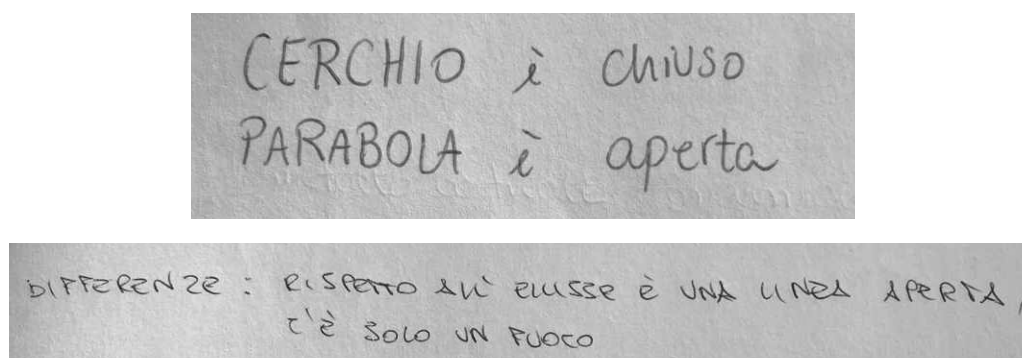 CERCHIO è chiuso
PARABOLA è aperta
DIFFERENZE: RISPETTO ALL' ELLISSE È UNA LINEA APERTA,
C'È SOLO UN FUOCO